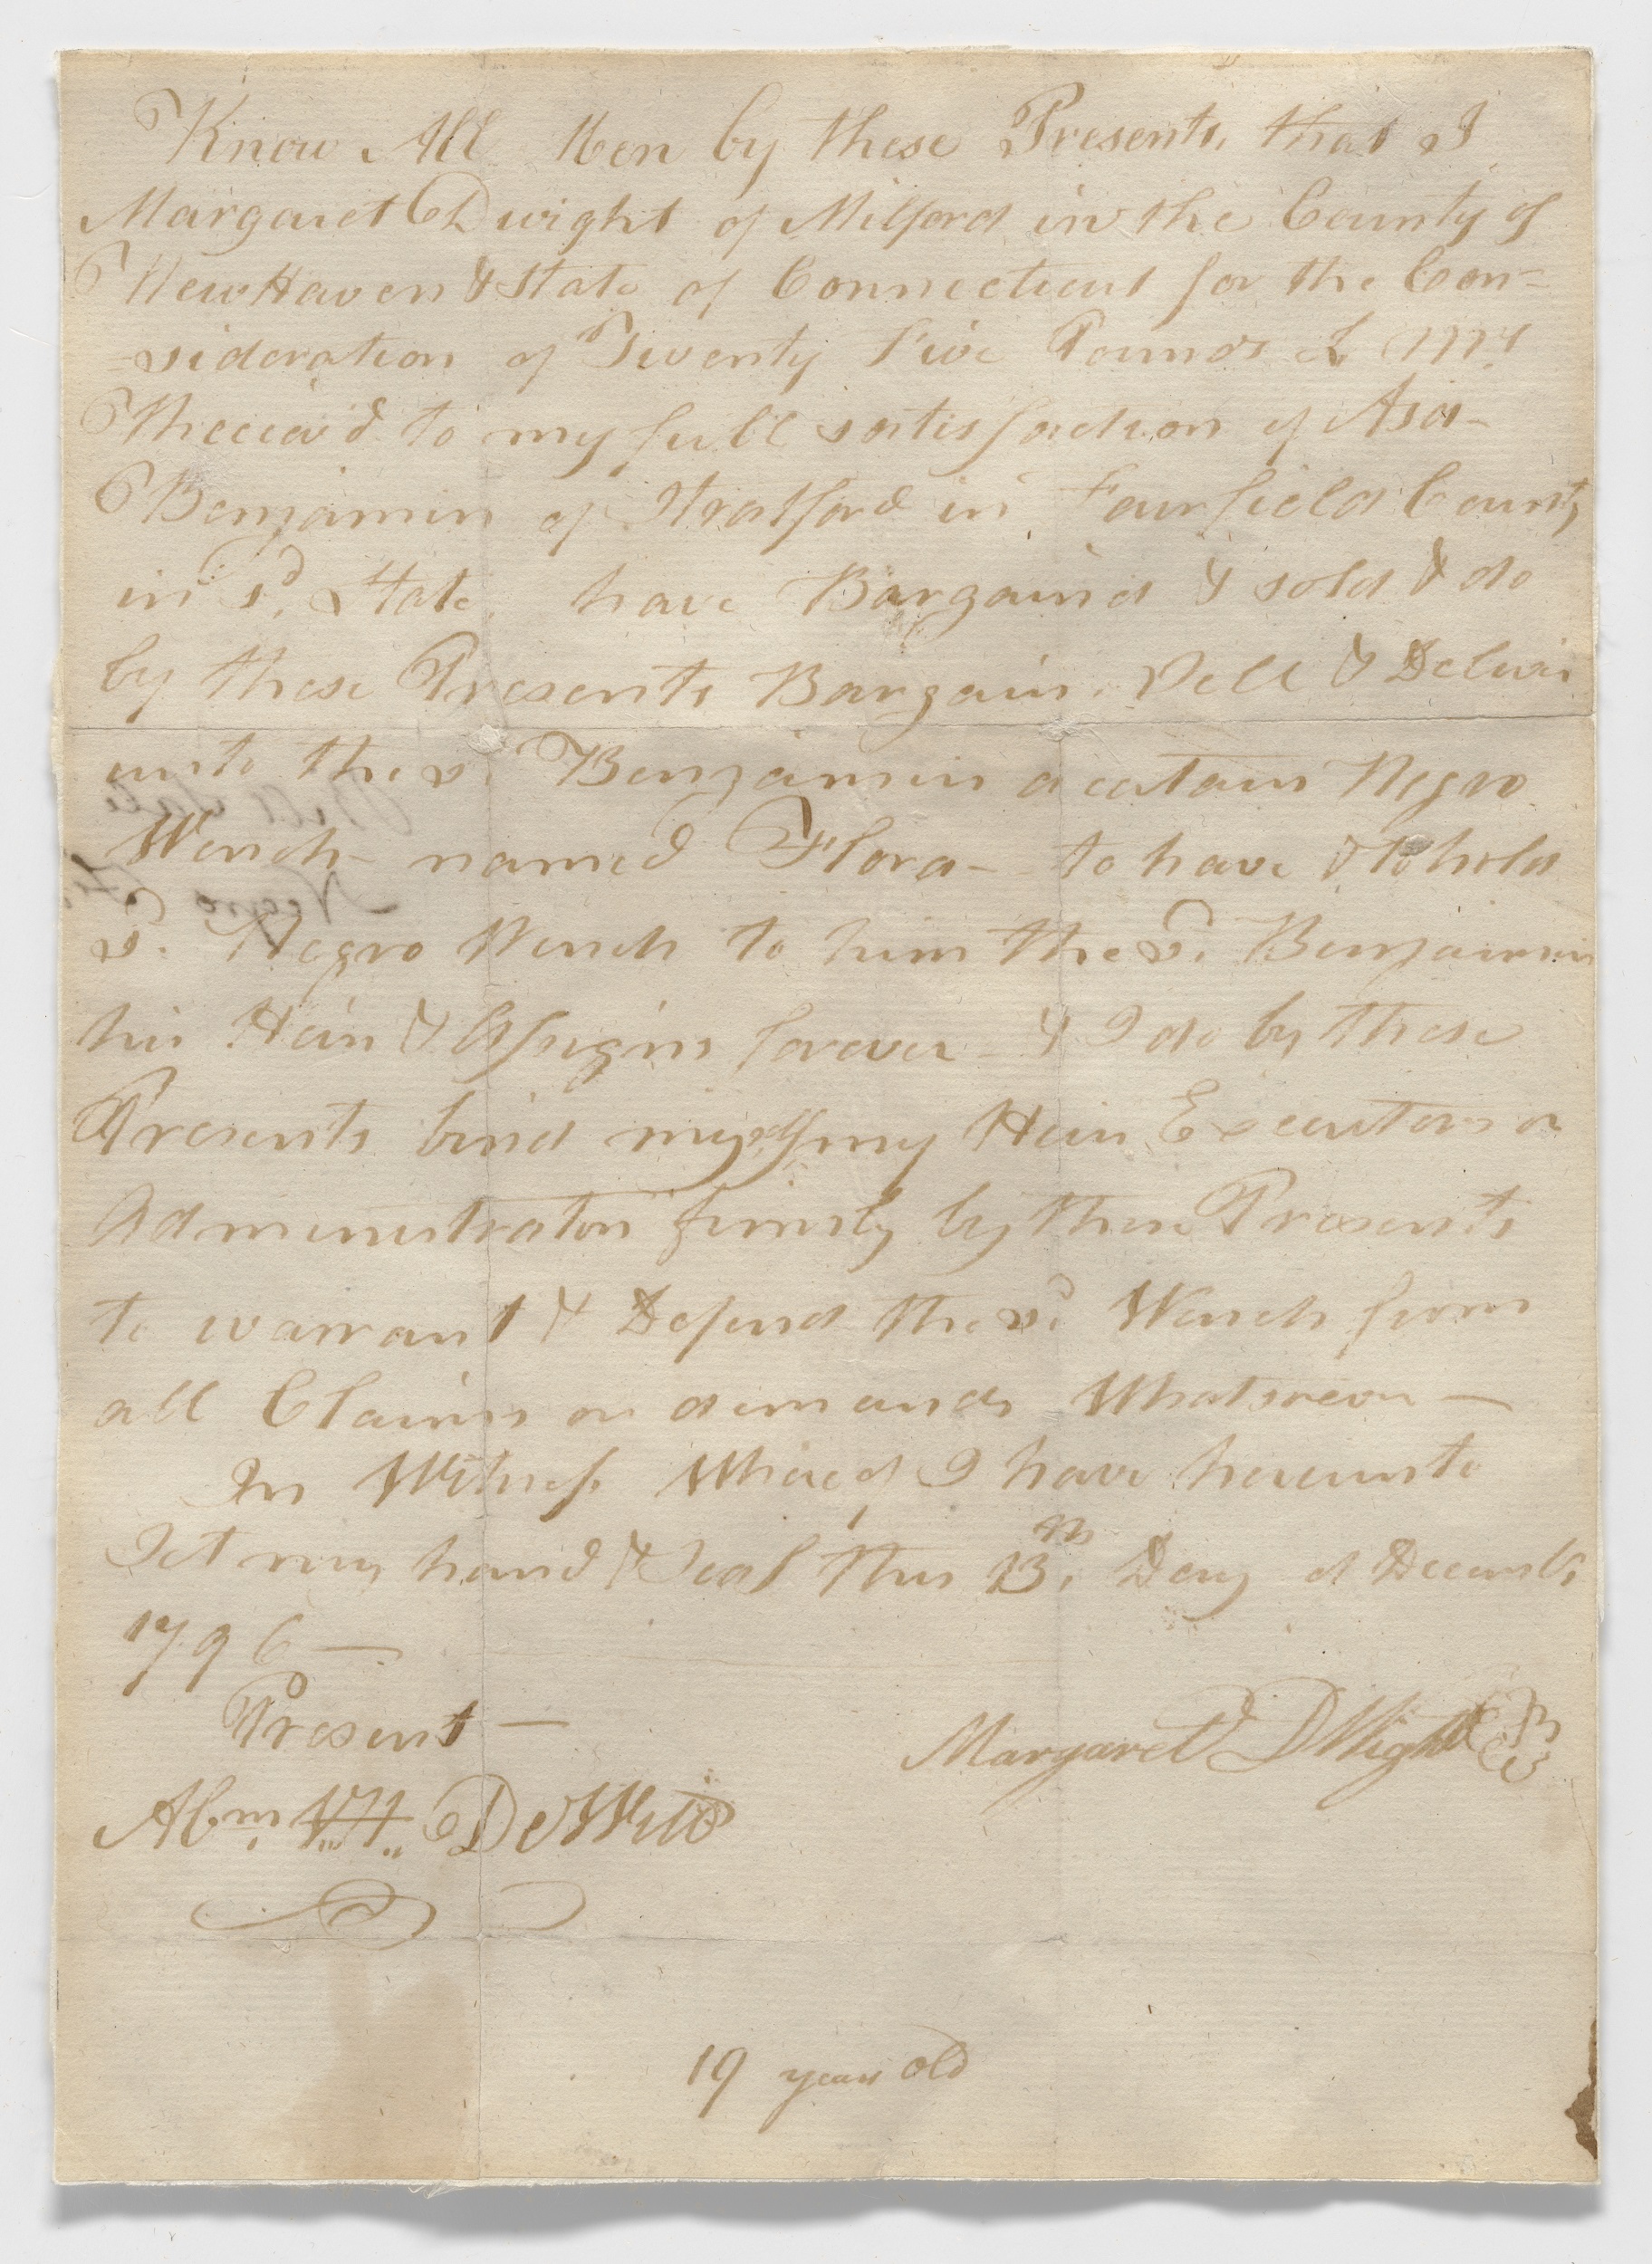 Know All Men by these Presents, that I
Margaret Dwight of Milford in the County of
New Haven & State of Connecticut for the Con-
-sideration of Twenty Five Pounds
Receiv'd to my full satisfaction of Asa
Benjamin of Stratford in Fairfield County
in sd. State, have Bargain'd & sold & do
by these Presents Bargain, Sell & Deliver
unto the sd. Benjamin a certain Negro
Wench named Flora - to have & to hold
sd. Negro Wench to him the sd. Benjamin
his Heirs & Assigns forever - & I do by these
Presents bind myself my Heirs Executors or
Administrators firmly by these Presents
to warrant & Defend the sd. Wench from
all Claims or demands Whatsoever —
In Witness Whereof I have hereunto
Set my hand & Seal this 13th. Day of Decembr,
1796 —
Present —
Margaret DWight
Abm. V.. H.. DeWitt
19 years old
Bill Sale
Negro